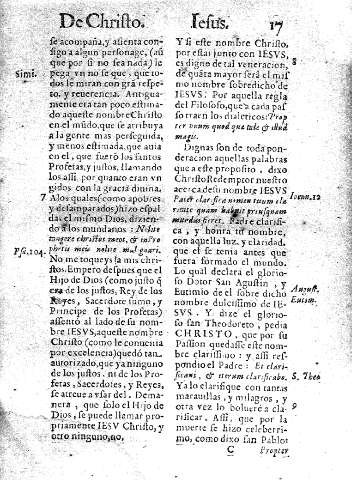 De Christo. Iesus. 17
se acompaña, y asienta con-
sigo a algun personage, (así
que por si no sea nada) le
Simi. pega vn no se que, que to-
dos le miran con grā respe-
to, y reuerencia. Antigua-
mente era tan poco estima-
do aqueste nombre Christo
en el mūdo, que se atribuya
a la gente mas perseguida,
y menos estimada, que auia
en el, que fueró los santos
Profetas, y justos, llamando
los assi, por quanto eran vn
gidos con la gracia diuina.
7 A los quales (como a pobres
y desamparados) hizo espal-
da el mismo Dios, diziendo
a los mundanos: Nolite
Psa. 104. tangere christos meos, & in pro
phetis meis nolite malignari.
No me toqueys a mis chris-
tos. Empero despues que el
Hijo de Dios (como justo q̄
era de los justos, Rey de los
Reyes, Sacerdote sumo, y
Principe de los Profetas)
assentó al lado de su nom-
bre IESVS, aqueste nombre
Christo (como le conuenia
por excelencia) quedó tan
autorizado, que ya ninguno
de los justos, ni de los Profe-
tas, Sacerdotes, y Reyes,
se atreue a vsar del. Dema-
nera, que solo el Hijo de
Dios, se puede llamar pro-
priamente IESV Christo, y
otro ninguno, no.
Y si este nombre Christo,
por estar junto con IESVS, 8
es digno de tal veneracion,
de quāta mayor será el mis
mo nombre sobredicho de
IESVS: Por aquella regla
del Filosofo, que a cada pas
so traen los dialeticos: Prop
ter vnum quod que tale & illud
magis.
Dignas son de toda pon-
deracion aquellas palabras
que a este proposito, dixo
Christo Redemptor nuestro
acerca desu nombre IESVS
Pater clarifica nomen tuum cla Ioann. 12
ritate quam habui priusquam
mundus fieret. Padre clarifica
, y honra tu nombre,
con aquella luz, y claridad,
que el se tenia antes que
fuera formado el mundo.
Lo qual declara el glorio-
so Dotor San Agustin, y August.
Eutimio de el sobre dicho Eutim.
nombre dulcissimo de IE-
SVS. Y dize el glorio-
so san Theodoreto, pedia
CHRISTO, que por su
Passion quedasse este nom-
bre clarissimo: y assi res-
pondio el Padre: Et clari-
ficaui, & iterum clarificabo. S. Theo
Ya lo clarifique con tantas
marauillas, y milagros, y 9
otra vez lo boluere a cla-
rificar. Assi, que por la
muerte se hizo celeberri-
mo, como dixo san Pablo:
C Propter